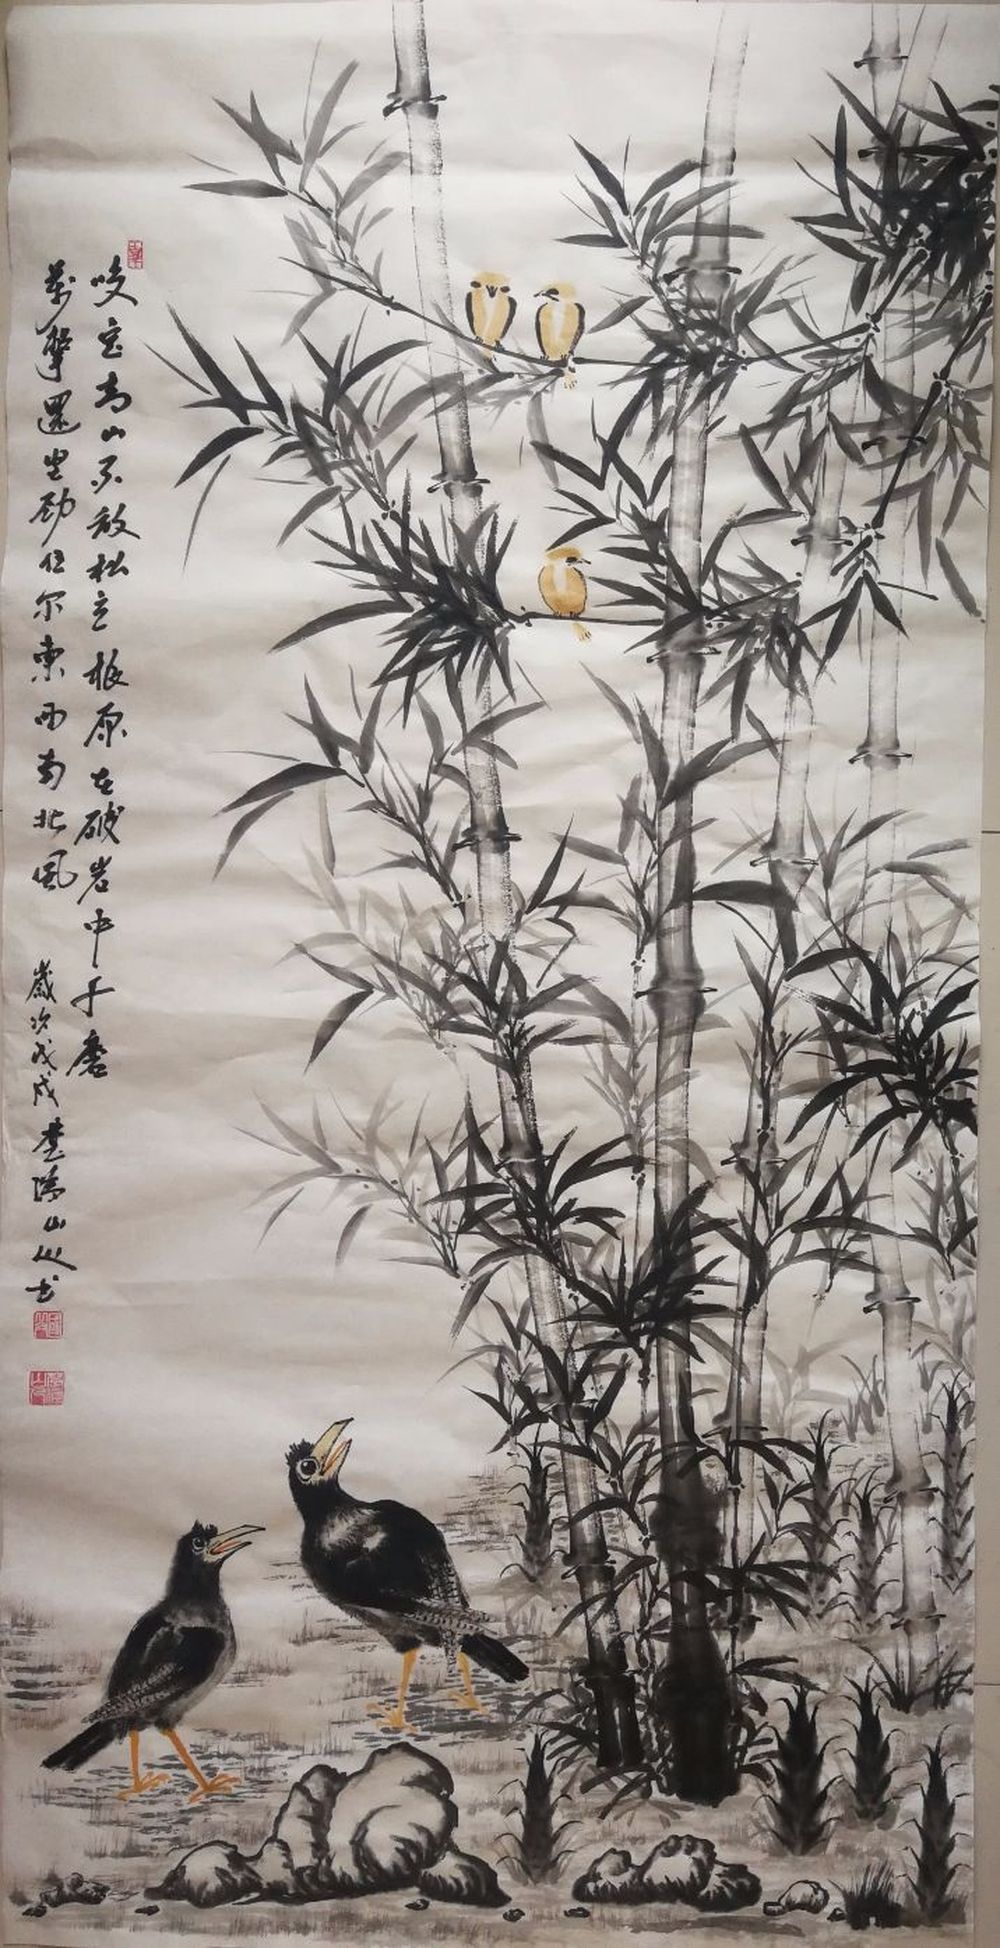 咬定青山不放松立根原在破岩中千磨
萬擊還坚劲任尔東西南北風 歲次戊戌 山人书